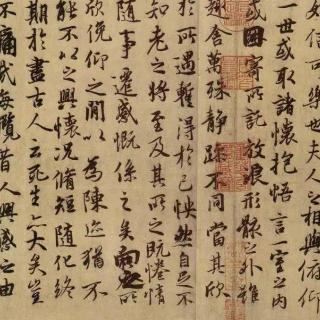 娛信可樂也夫人之相與俯仰
一世或取諸懷抱悟言一室之內
或因寄所託放浪形骸之外雖
趣舍萬殊靜躁不同當其欣
於所遇暫得於己怏然自足不
知老之將至及其所之既惓情
隨事遷感慨係之矣向之所
欣俛仰之間以為陳迹猶不
能不以之興懷況脩短隨化終
期於盡古人云死生亦大矣豈
不痛哉每攬昔人興感之由